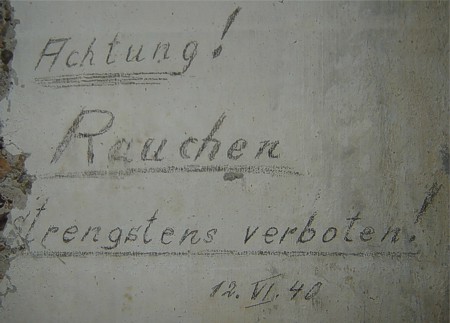 Achtung!
Rauchen
strengstens verboten!
12. VI. 40